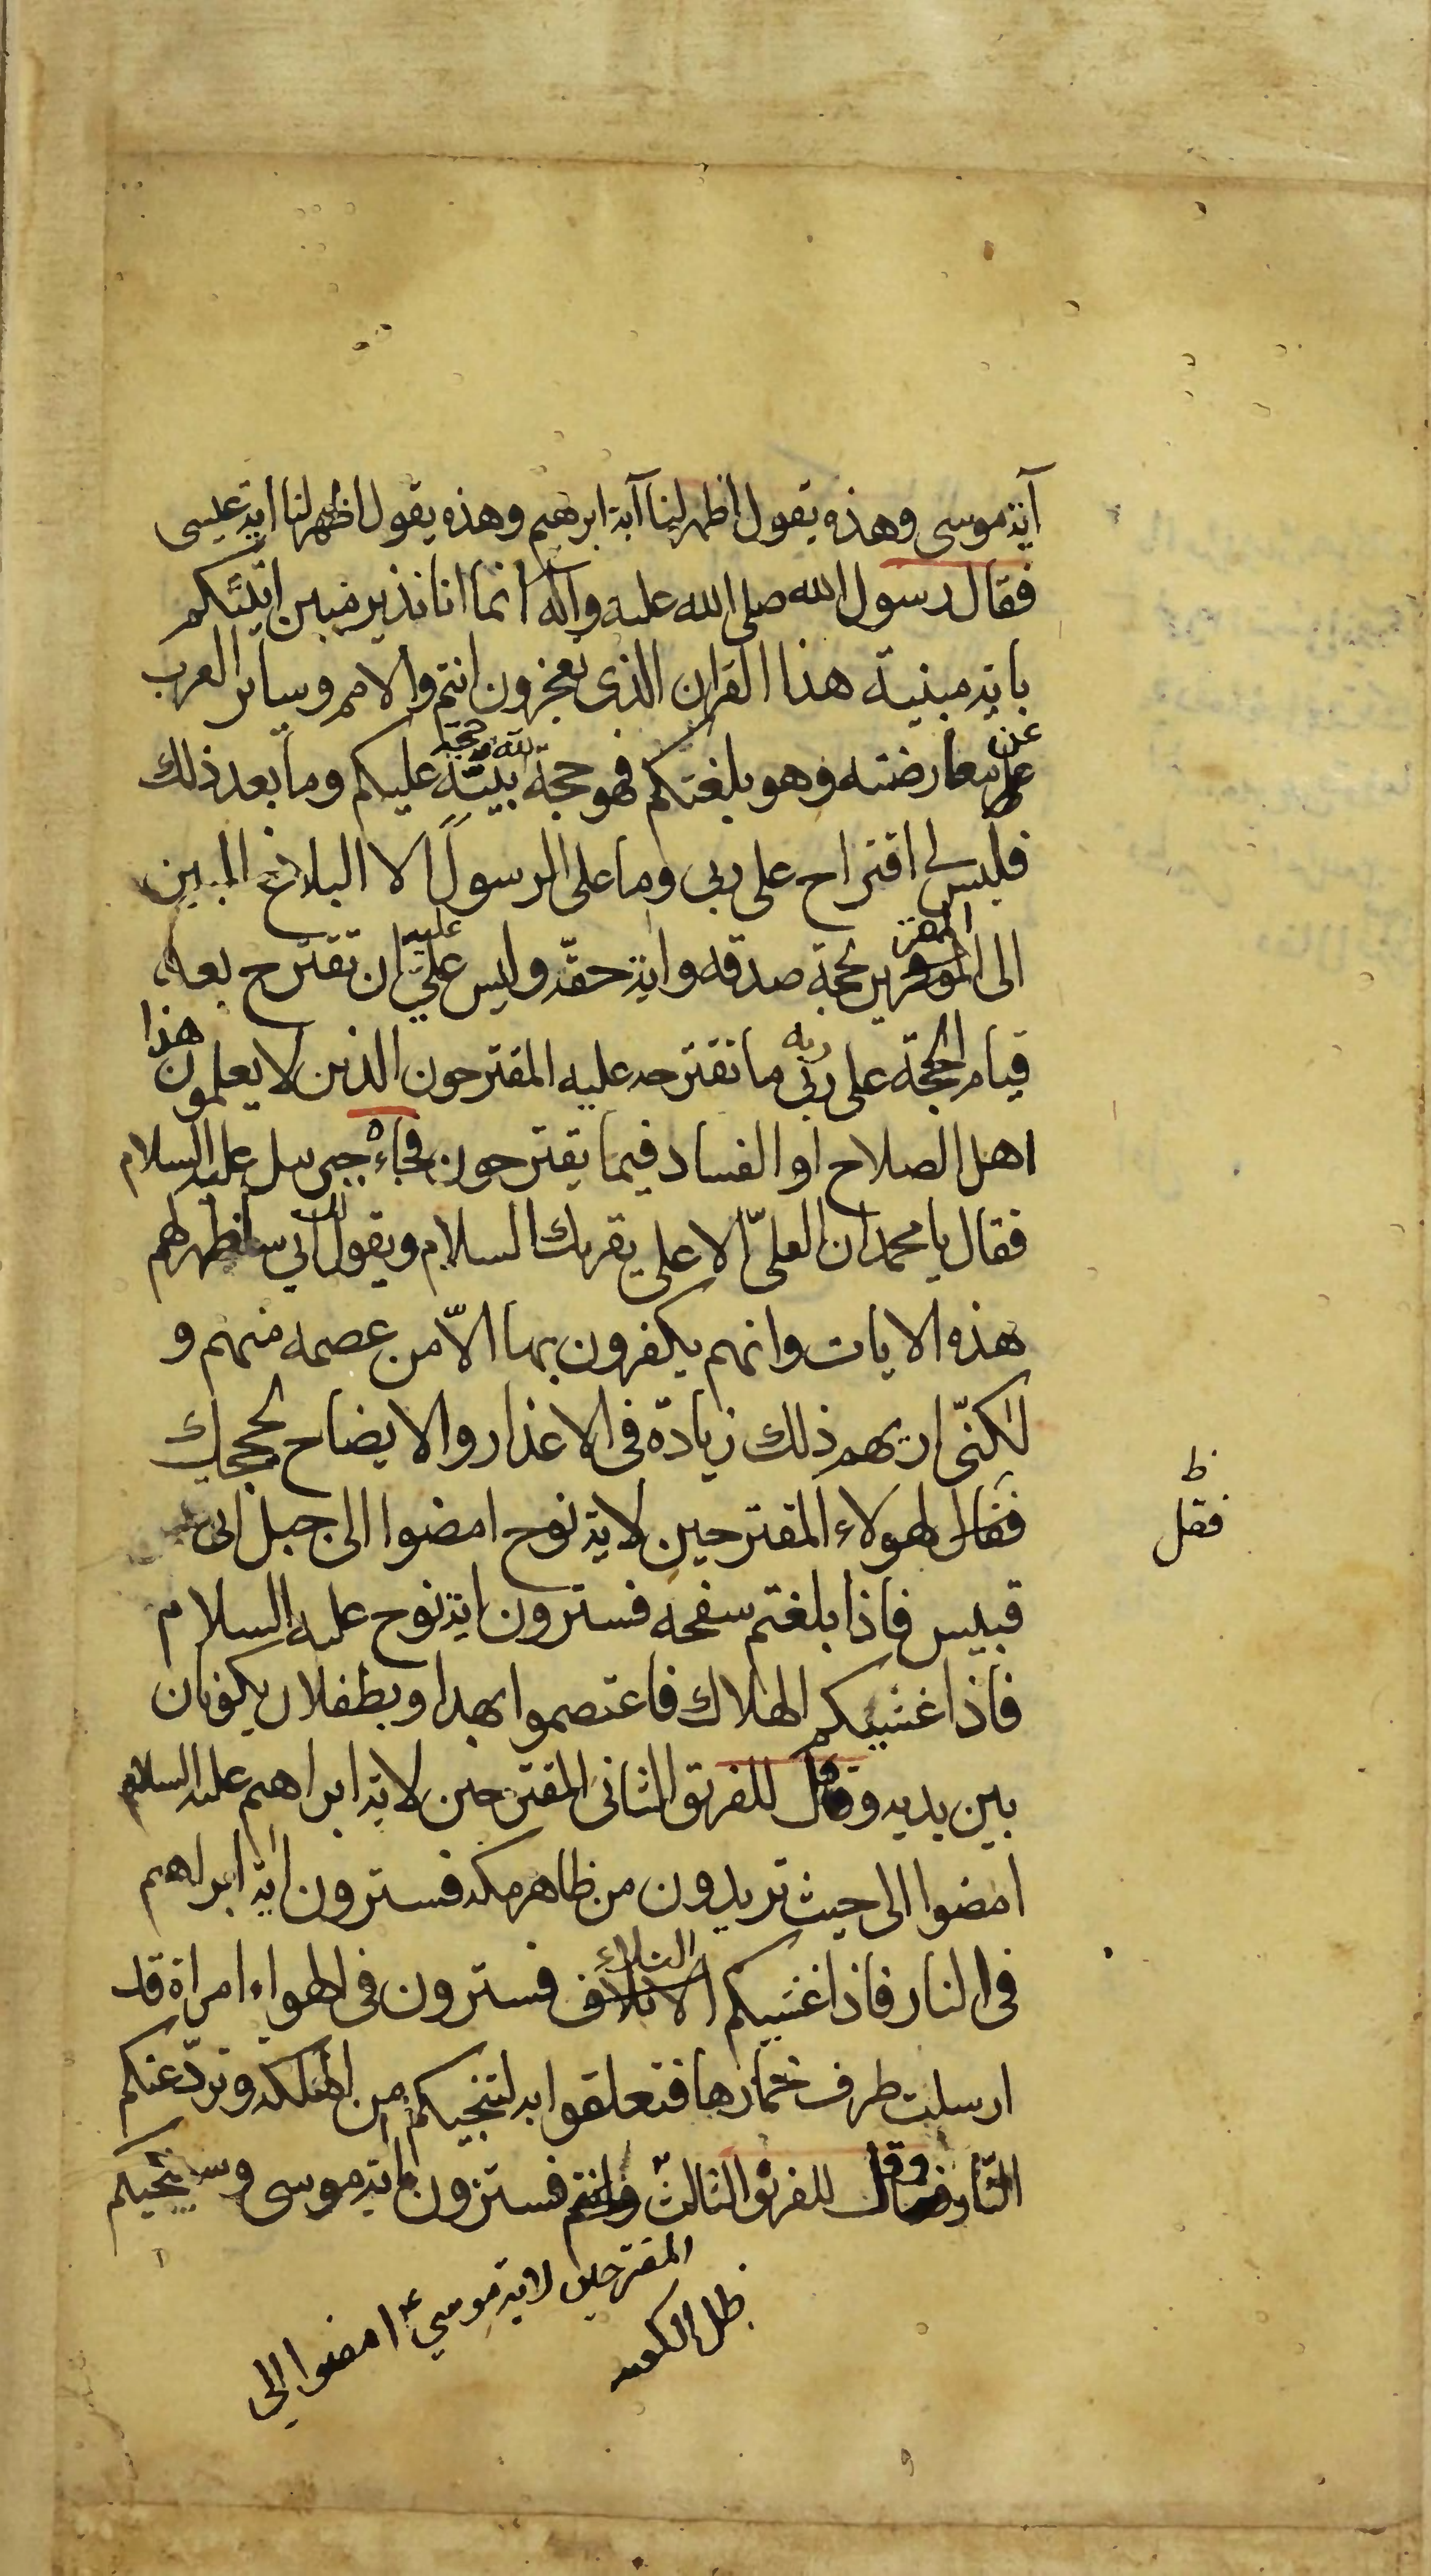 آية موسى وهذه يقول اظهر لنا آية ابرهيم وهذه يقول اظهر لنا اية عيسى
فقال رسول الله صلى الله عليه وآله انما انا نذير مبين اتيتكم
باية مبنية هذا القران الذى تعجزون انتم والامم وساير العرب
عن
معارضته وهو بلغتكم فهو حجة بينة عليكم وما بعد ذلك
الله وحجة
فليس لى اقتراح على ربى وما على الرسول الا البلاغ المبين
الى المقرين بحجة صدقه واية حقه وليس علي ان تقترح بعد
المقر
عليه
قيام الحجة على ربى ما تقترحه عليه المقترحون الذين لا يعلمون هذا
ربه
اهل الصلاح او الفساد فيما يقترحون فجاءه جبرئيل عليه السلام
فقال يا محمد ان العلىّ الاعلى يقرئك السلام ويقول انى ساظهر لهم
لك
هذه الايات وانهم يكفرون بها الاّ من عصمه منهم و
لكنّى اريهم ذلك زيادة فى الاعذار والايضاح لحججك
فقال لهولاء المقترحين لاية نوح امضوا الى جبل ابى
ظ
فقل
قبيس فاذا بلغتم سفحه فسترون اية نوح عليه السلام
فاذا غشيكم الهلاك فاعتصموا بهذا وبطفلان يكونان
بين يديه وقل للفريق الثانى المقترحين لاية ابراهيم عليه السلام
امضوا الى حيث تريدون من ظاهر مكه فسترون اية ابراهيم
فى النار فاذا غشيكم الاتلاف فسترون فى الهواء امراة قد
البلاء
ارسلت طرف خمارها فتعلقوا به لتنجيكم من الهلكه وتردّ عنكم
النّار وقل للفريق الثالث وانتم فسترون اية موسى وسينجيكم
المقترحين لاية موسي ع امضوا الى
ظل الكعبه